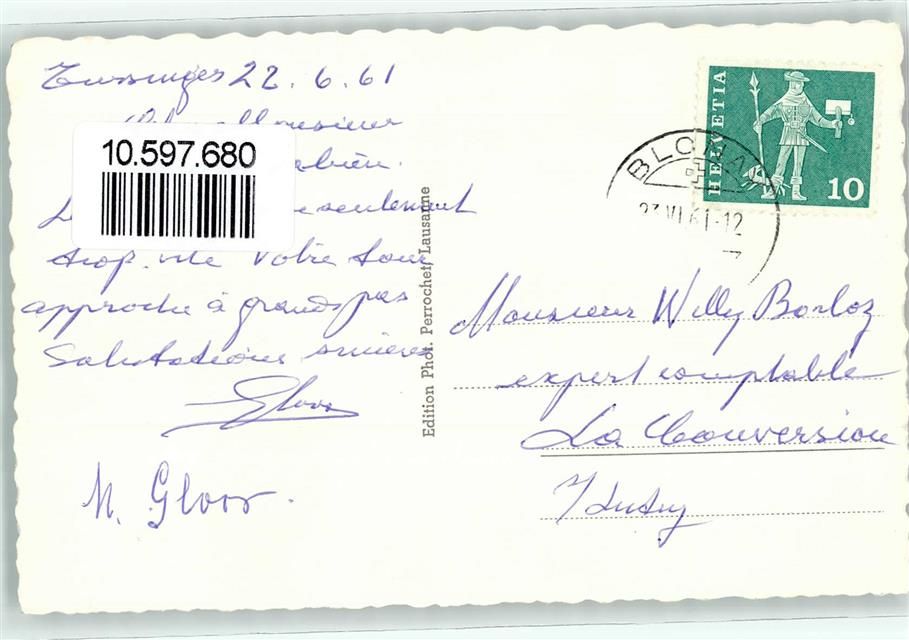 22.6.61
Monsieur
10.597.680
seulement
trop vite Votre tour
approche à grands pas
Salutations sincères
Gloor
M. Gloor.
Edition Phot. Perrochet, Lausanne
HELVETIA
10
BLONAY
23.VI.61-12
Monsieur Willy Borloz
expert comptable
La Conversion
s/Lutry